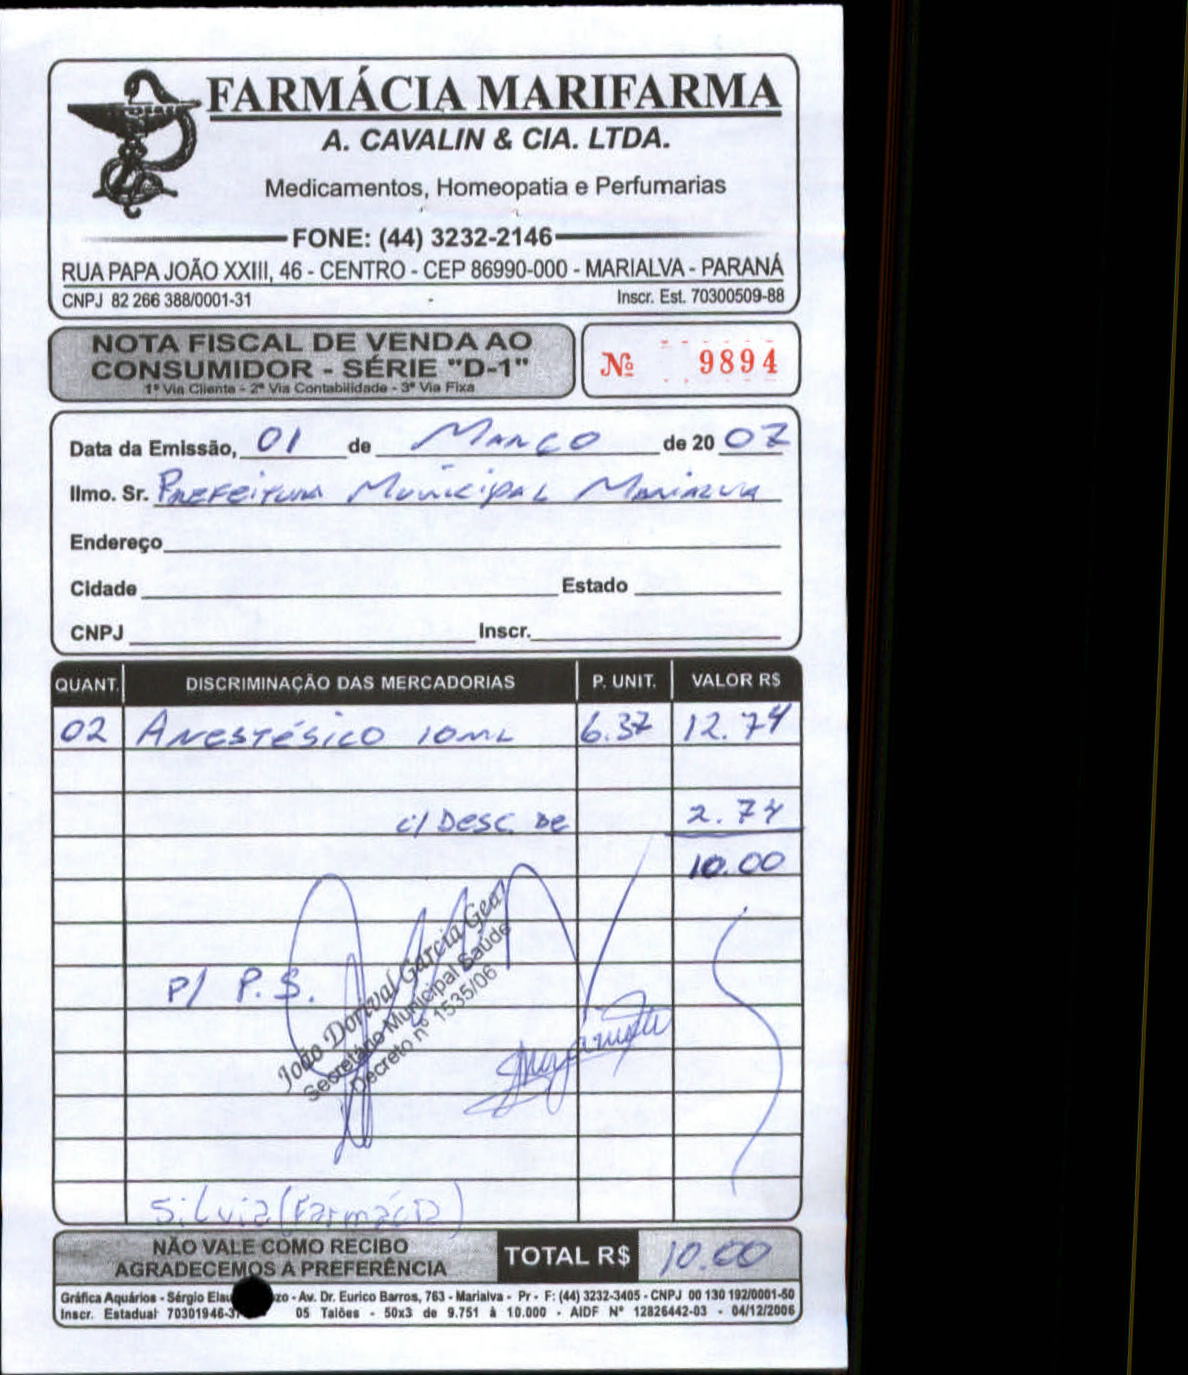 FARMÁCIA MARIFARMA
A. CAVALIN & CIA. LTDA.
Medicamentos, Homeopatia e Perfumarias
FONE: (44) 3232-2146
RUA PAPA JOÃO XXIII, 46 - CENTRO - CEP 86990-000 - MARIALVA - PARANÁ
CNPJ 82 266 388/0001-31 Inscr. Est. 70300509-88
NOTA FISCAL DE VENDA AO
CONSUMIDOR - SÉRIE "D-1"
1ª Via Cliente - 2ª Via Contabilidade - 3ª Via Fixa
Nº 9894
Data da Emissão, 01 de Março de 20 07
Ilmo. Sr. Prefeitura Municipal Marialva
Endereço
Cidade Estado
CNPJ Inscr.
QUANT. DISCRIMINAÇÃO DAS MERCADORIAS P. UNIT. VALOR R$
02 Anestésico 10ml 6.37 12.74
c/ Desc. de 2.74
10.00
P/ P.S.
João Dorival Garcia Gea
Secretário Municipal Saúde
Decreto nº 1535/06
Silvia (Farmácia)
NÃO VALE COMO RECIBO
AGRADECEMOS A PREFERÊNCIA
TOTAL R$ 10.00
Gráfica Aquários - Sérgio - Av. Dr. Eurico Barros, 763 - Marialva - Pr - F: (44) 3232-3405 - CNPJ 00 130 192/0001-50
Inscr. Estadual 05 Talões - 50x3 de 9.751 à 10.000 - AIDF Nº 12826442-03 - 04/12/2006